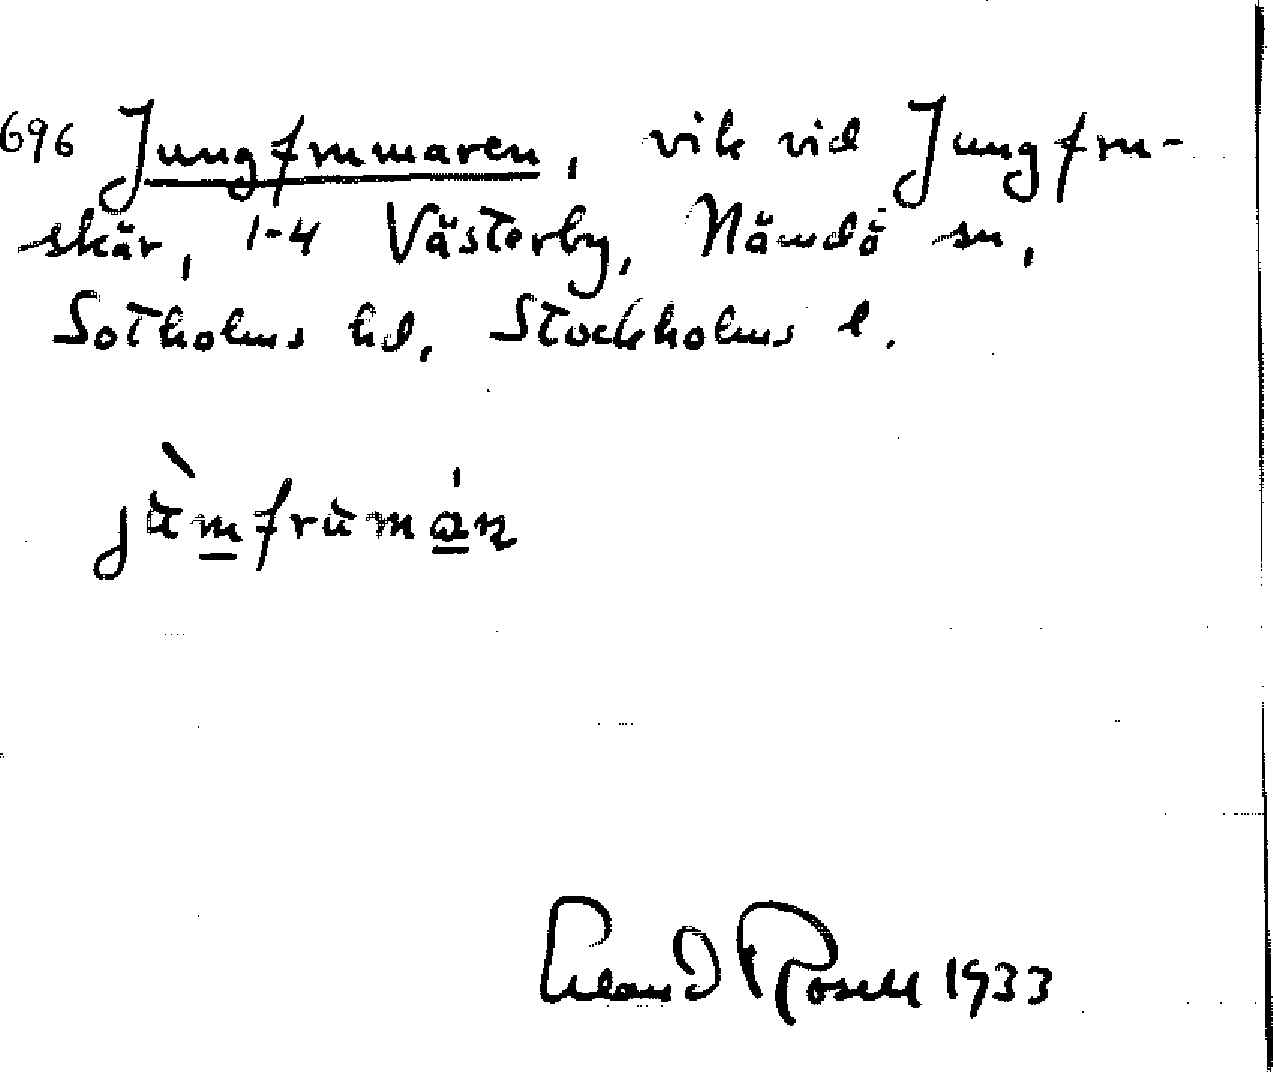 696 Jungfrumaren, vik vid Jungfru-
skär, 1-4 Västerby, Nämdö sn,
Sotholms hd, Stockholms l.
jùmfrùmán
Erland Rosell 1933